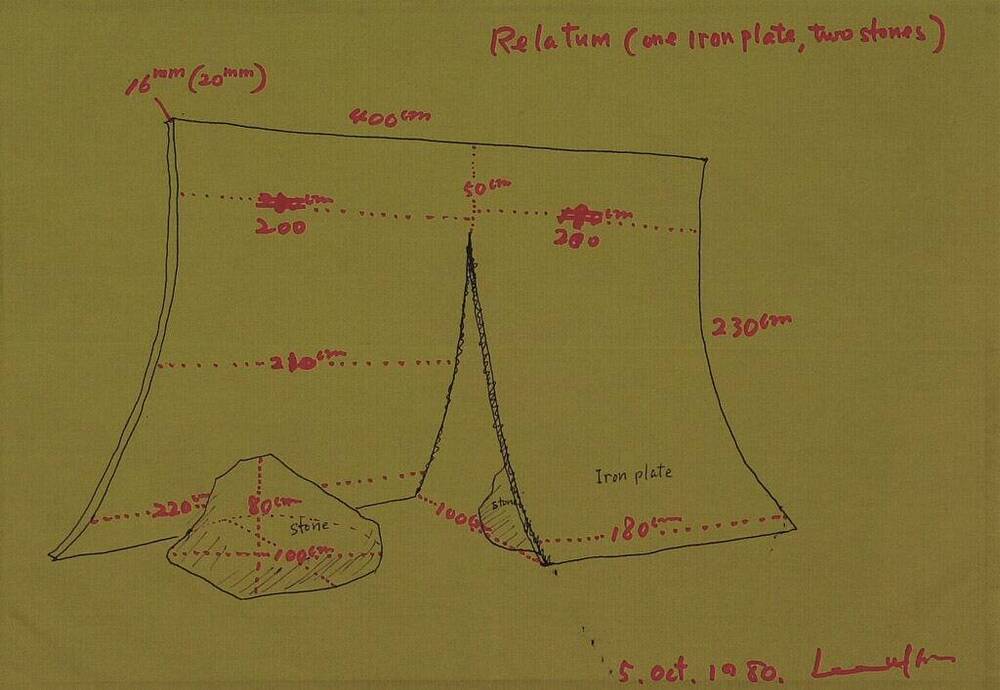 Relatum (one Iron plate, two stones)
16mm (20mm)
400cm
50cm
cm
200
cm
200
230cm
210cm
Iron plate
220cm
80cm
stone
100cm
100cm
stone
180cm
5. Oct. 1980.